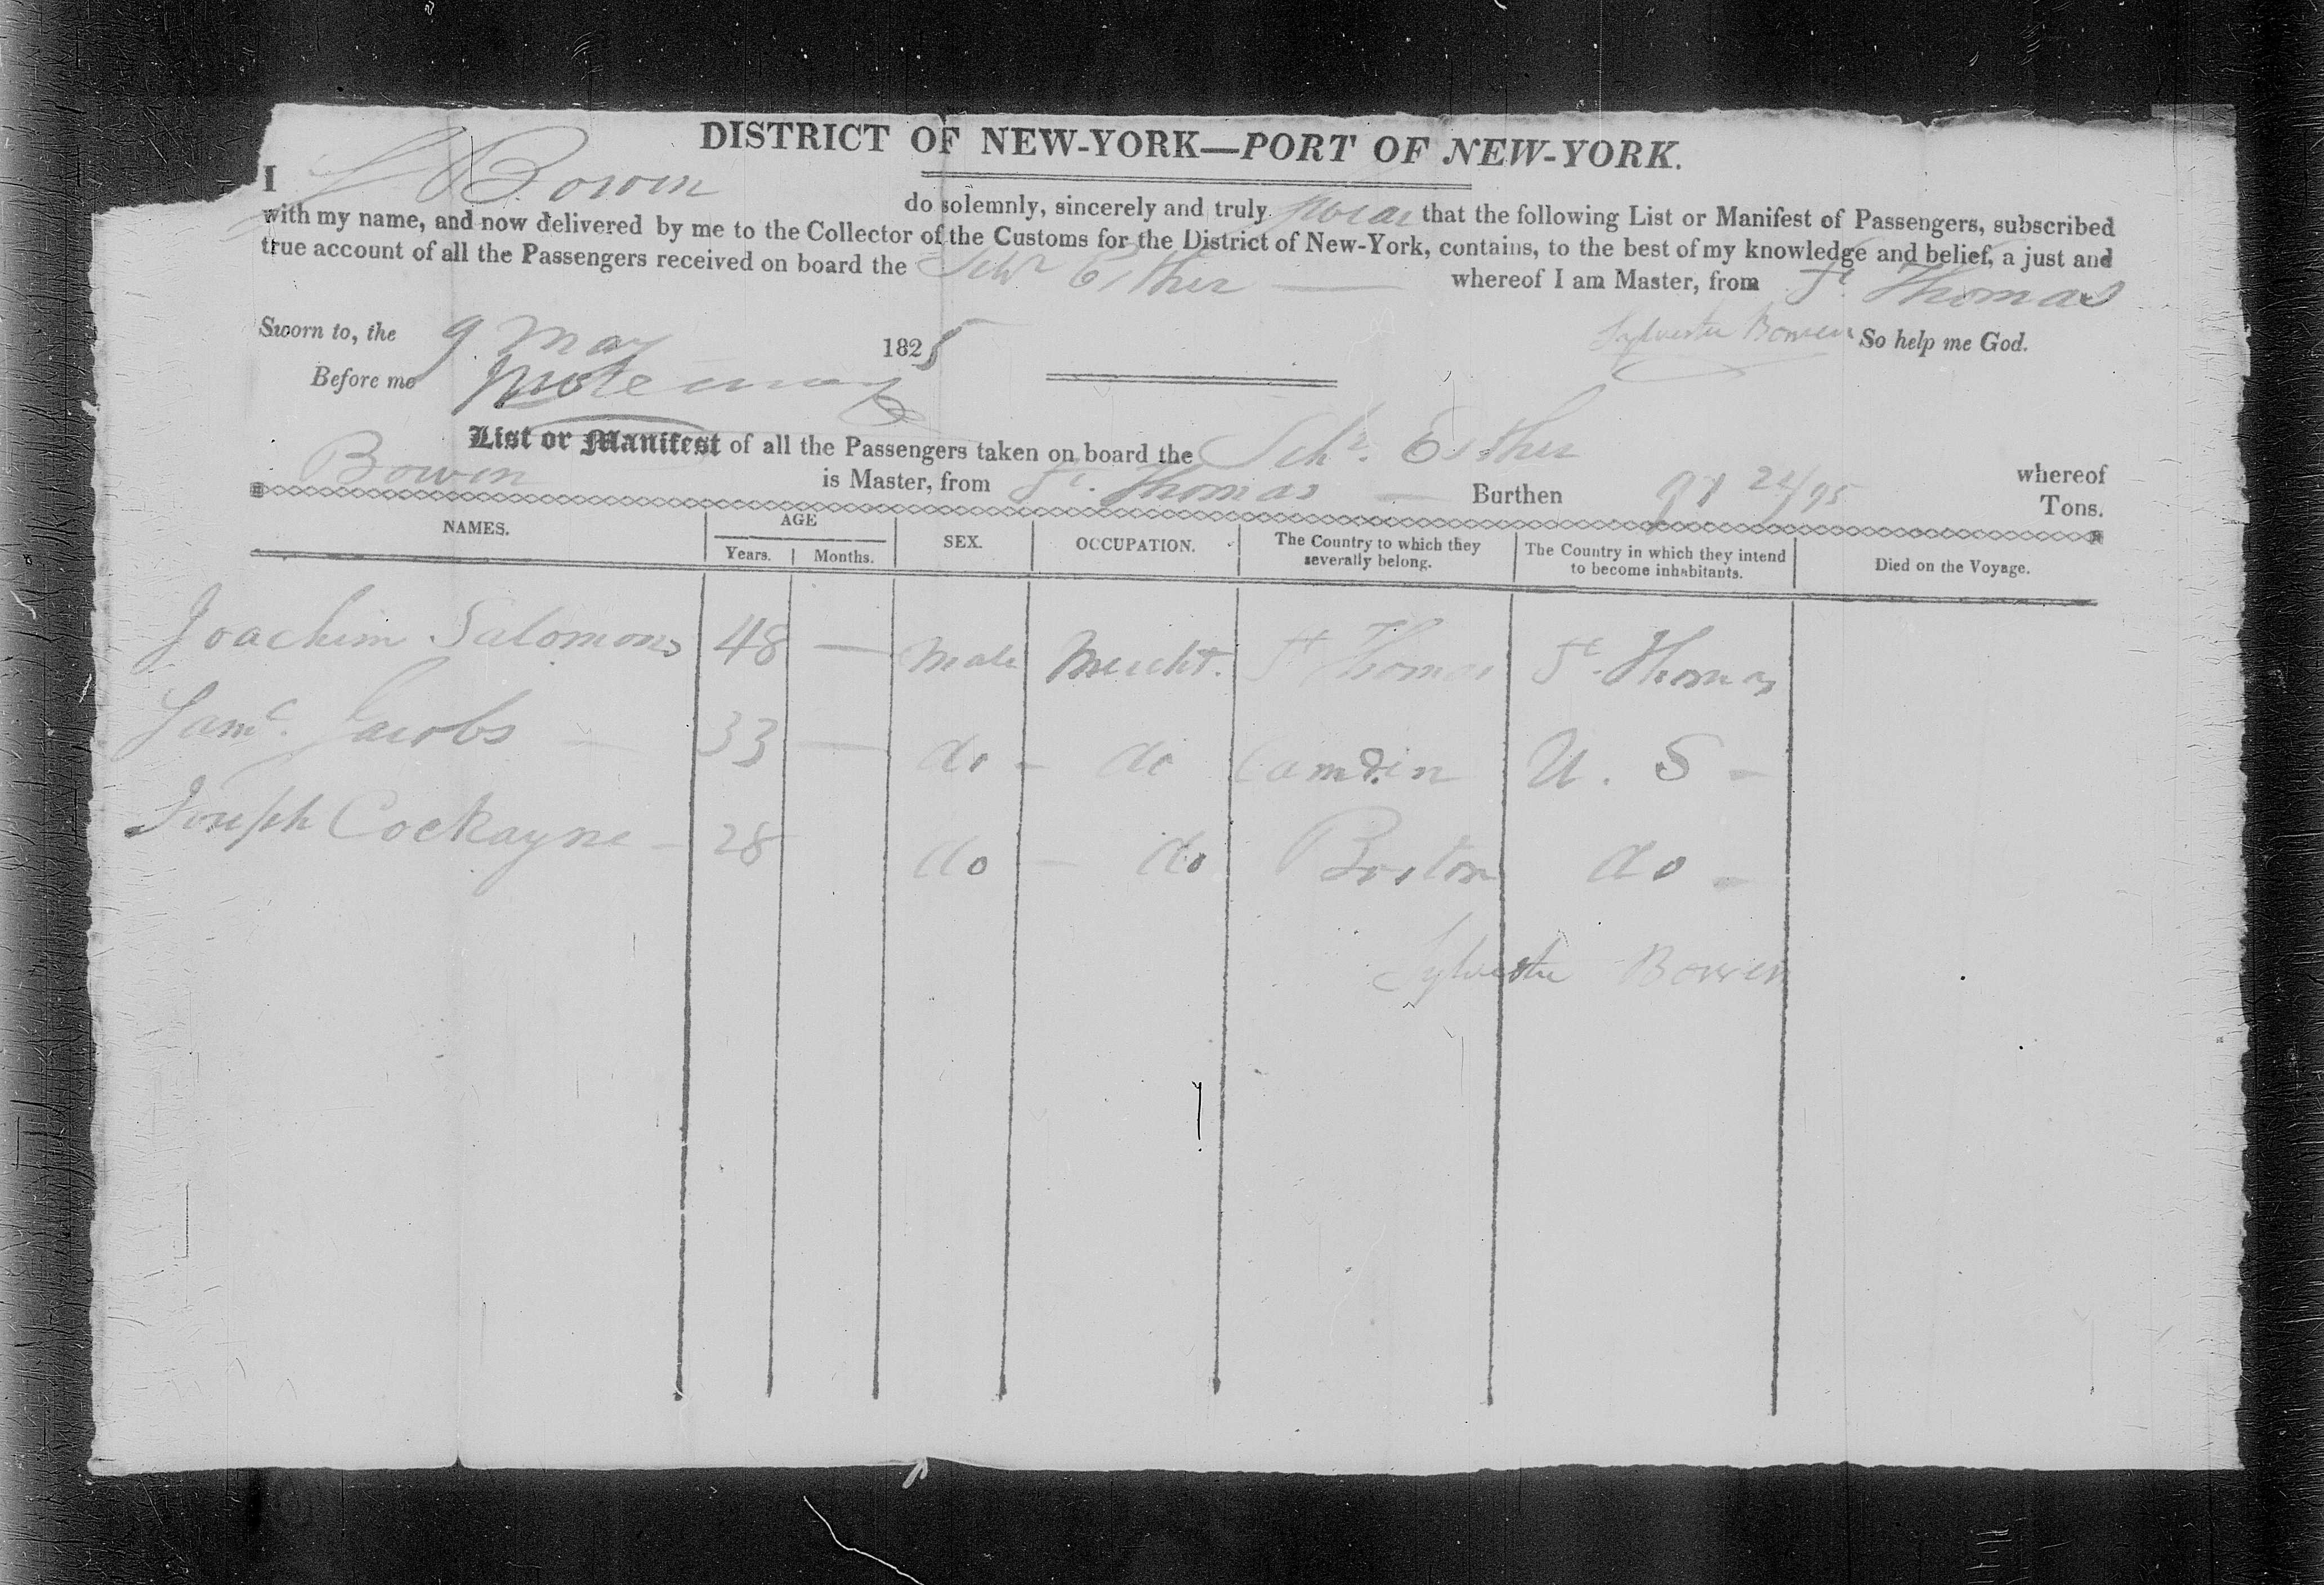 DISTRICT OF NEW-YORK—PORT OF NEW-YORK.
I S Bowen do solemnly, sincerely and truly swear that the following List or Manifest of Passengers, subscribed
with my name, and now delivered by me to the Collector of the Customs for the District of New-York, contains, to the best of my knowledge and belief, a just and
true account of all the Passengers received on board the Schr Esther — whereof I am Master, from St. Thomas
Sworn to, the 9 May 1825 Sylvester Bowen So help me God.
Before me
List or Manifest of all the Passengers taken on board the Schr. Esther whereof
Bowen is Master, from St. Thomas — Burthen 24/95 Tons.
NAMES. AGE Years. Months. SEX. OCCUPATION. The Country to which they severally belong. The Country in which they intend to become inhabitants. Died on the Voyage.
Joachim Salomons 48 — Male Mercht. St Thomas St. Thomas
Saml. Jacobs — 33 — do - do Camden U. S -
Joseph Cockayne - 28 do - do Boston do -
Sylvester Bowen